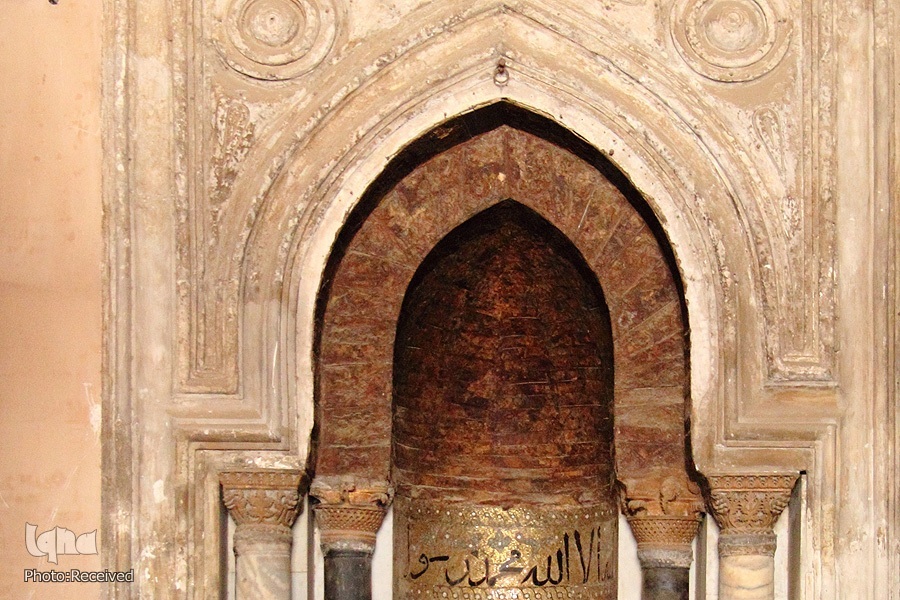 الا الله محمد رسو
iqna
Photo:Received